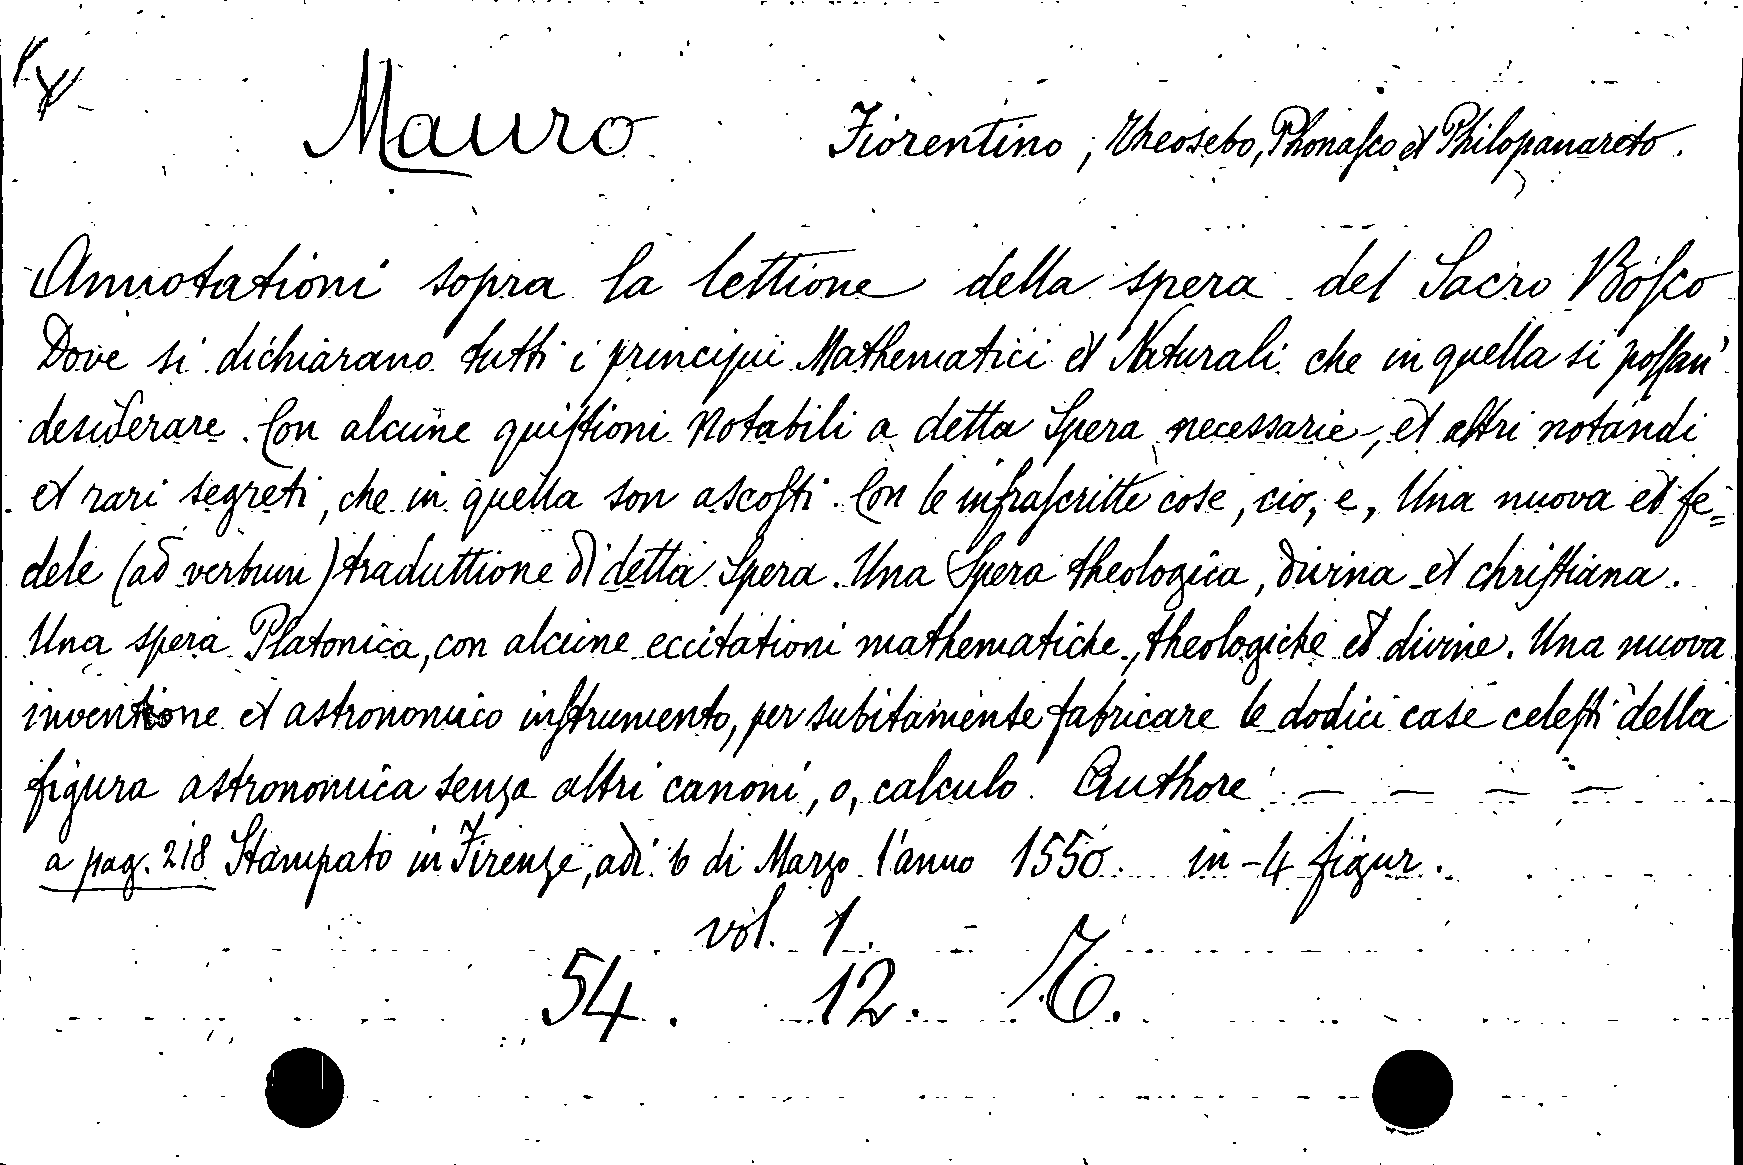 Mauro Fiorentino, Theosebo, Phonaſco et Philopanareto.
Annotationi sopra la lettione della spera del Sacro Boſco
Dove si dichiarano tutti i principii Mathematici et Naturali che in quella si poſſan'
desiderare. Con alcune quiſtioni Notabili a detta Spera necessarie, et altri notandi
et rari segreti, che in quella son ascoſti. Con le infraſcritte cose, cio, e, Una nuova et fe=
dele (ad verbum) traduttione di detta Spera. Una Spera theologica, divina et chriſtiana.
Una spera Platonica, con alcune eccitationi mathematiche, theologiche et divine. Una nuova
inventione et astronomico inſtrumento, per subitamente fabricare le dodici case celeſti della
figura astronomica senza altri canoni, o, calculo. Authore — — — —
a pag. 218 Stampato in Firenze, adi 6 di Marzo l'anno 1550. in-4 figur.
vol. 1.
54. 12.